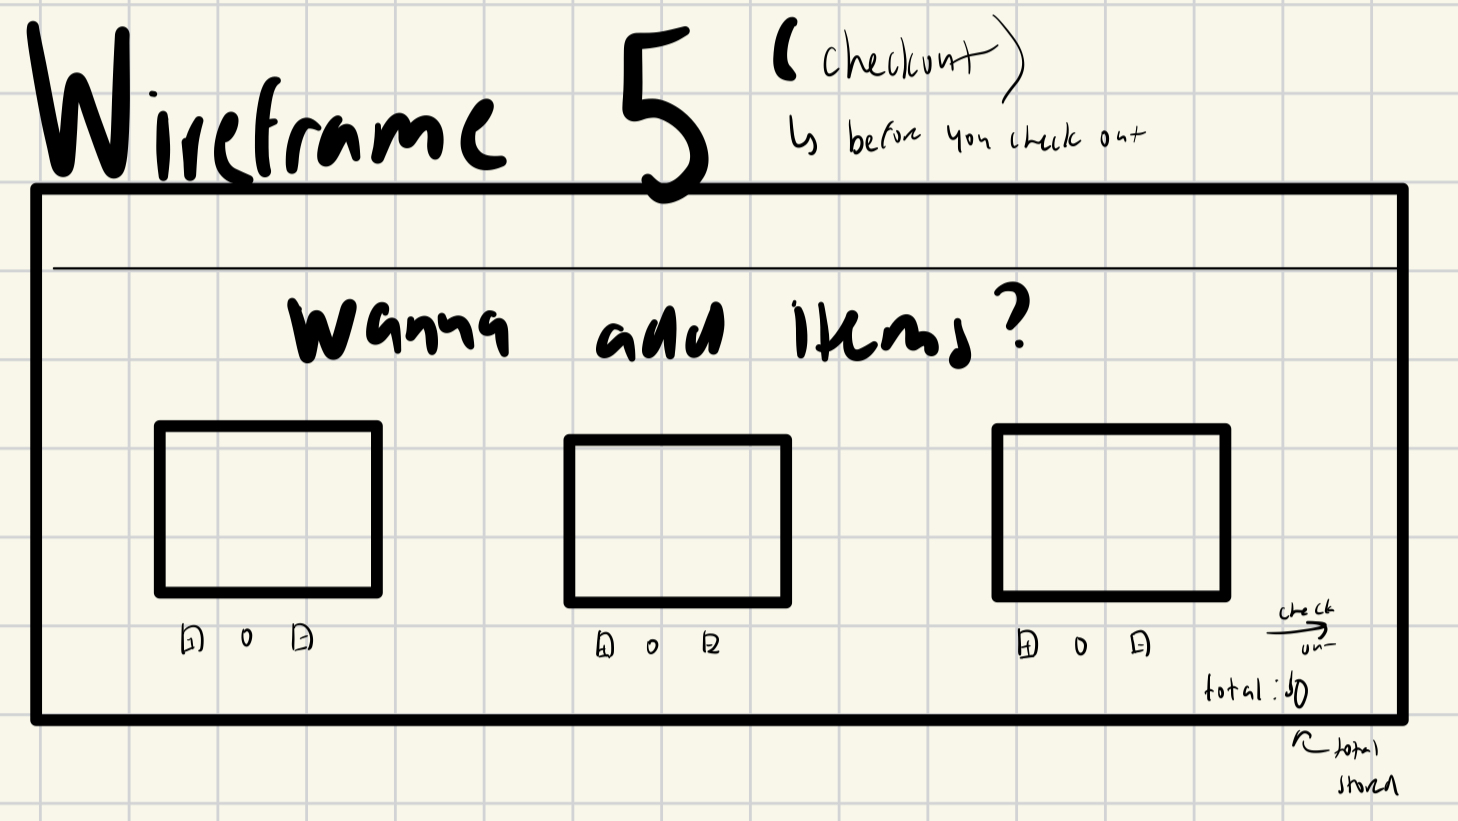 Wireframe 5 (checkout)
↳ before you check out
Wanna add items?
+ 0 -
+ 0 -
+ 0 -
check
out
total: $0
total
stored